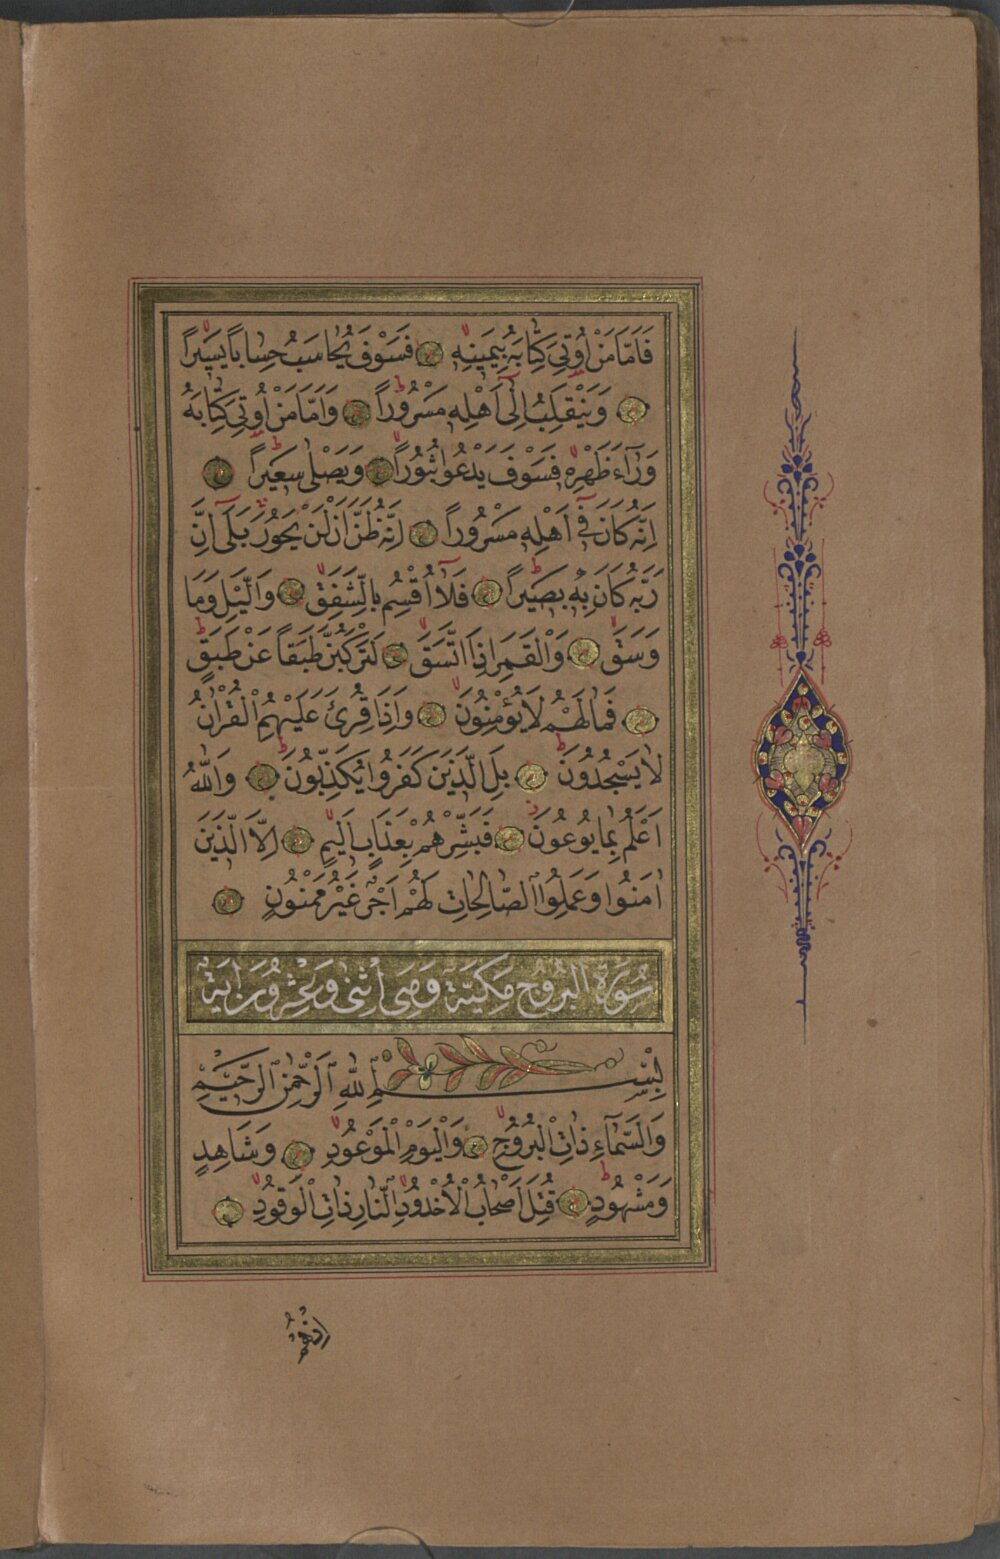 فَاَمَّا مَنْ اُوتِيَ كِتَابَهُ بِيَمِينِهٖ فَسَوْفَ يُحَاسَبُ حِسَاباً يَسٖيراً
وَيَنْقَلِبُ اِلٰٓى اَهْلِهٖ مَسْرُوراً وَاَمَّا مَنْ اُوتِيَ كِتَابَهُ
وَرَٓاءَ ظَهْرِهٖ فَسَوْفَ يَدْعُوا ثُبُوراً وَيَصْلٰى سَعٖيراً
اِنَّهُ كَانَ فٖٓي اَهْلِهٖ مَسْرُوراً اِنَّهُ ظَنَّ اَنْ لَنْ يَحُورَ بَلٰٓى اِنَّ
رَبَّهُ كَانَ بِهٖ بَصٖيراً فَلَٓا اُقْسِمُ بِالشَّفَقِ وَالَّيْلِ وَمَا
وَسَقَ وَالْقَمَرِ اِذَا اتَّسَقَ لَتَرْكَبُنَّ طَبَقاً عَنْ طَبَقٍ
فَمَا لَهُمْ لَا يُؤْمِنُونَ وَاِذَا قُرِئَ عَلَيْهِمُ الْقُرْاٰنُ
لَا يَسْجُدُونَ بَلِ الَّذٖينَ كَفَرُوا يُكَذِّبُونَ وَاللّٰهُ
اَعْلَمُ بِمَا يُوعُونَ فَبَشِّرْهُمْ بِعَذَابٍ اَلٖيمٍ اِلَّا الَّذٖينَ
اٰمَنُوا وَعَمِلُوا الصَّالِحَاتِ لَهُمْ اَجْرٌ غَيْرُ مَمْنُونٍ
سُورَةُ البُرُوجِ مَكِيَّة وَهِىَ اثْنٰى وَعِشْرُونَ اٰيَة
بِسْمِ اللّٰهِ الرَّحْمٰنِ الرَّحٖيمِ
وَالسَّمَٓاءِ ذَاتِ الْبُرُوجِ وَالْيَوْمِ الْمَوْعُودِ وَشَاهِدٍ
وَمَشْهُودٍ قُتِلَ اَصْحَابُ الْاُخْدُودِ النَّارِ ذَاتِ الْوَقُودِ
اِذْ هُمْ